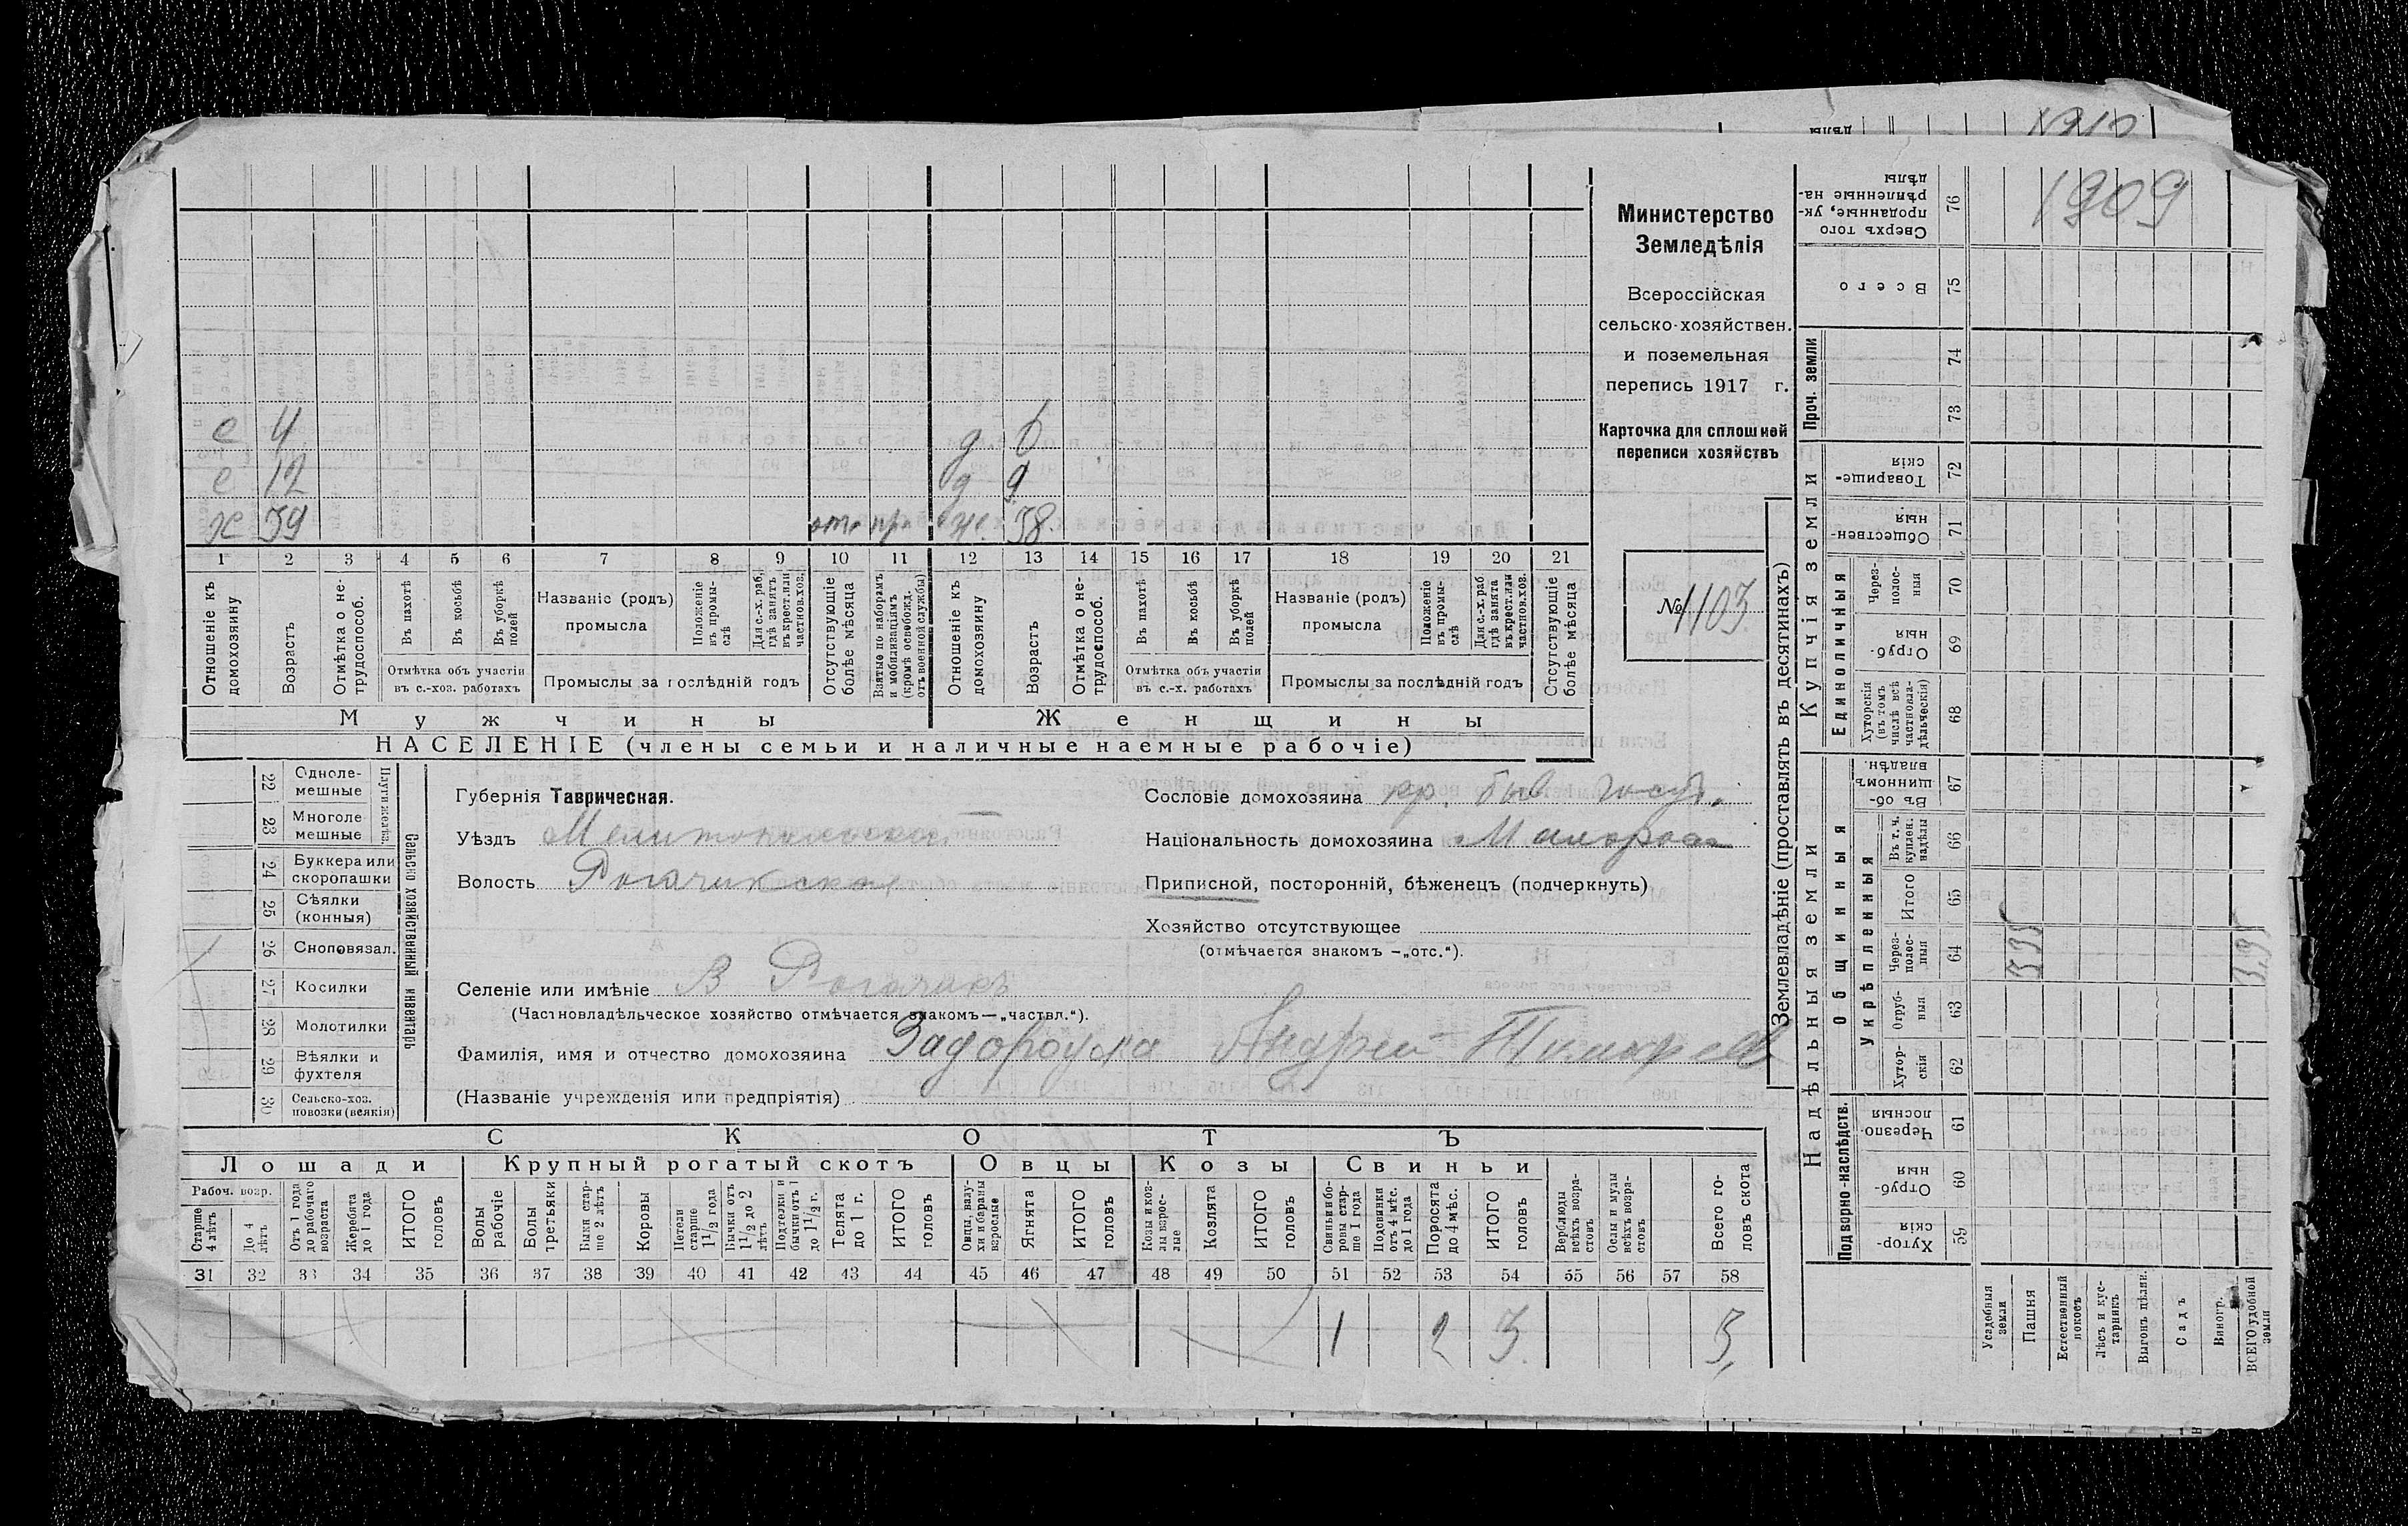 1910
дѣлы
1909
Министерство
Земледѣлія
Всероссійская
сельско-хозяйствен.
и поземельная
перепись 1917 г.
Карточка для сплошней
переписи хозяйствъ
№ 1103
е 4 д 6
е 12 д 9
х 39 же. 38.
1 2 3 4 5 6 7 8 9 10 11 12 13 14 15 16 17 18 19 20 21
Отношеніе къ домохозяину
Возрастъ
Отмѣтка о не-трудоспособ.
Въ пахотѣ
Въ косьбѣ
Въ уборкѣ полей
Отмѣтка объ участіи въ с.-хоз. работахъ
Названіе (родъ) промысла
Положеніе въ промы-слѣ
Для с.-х. раб, гдѣ занятъ въ крест. или частнов. хоз.
Промыслы за послѣдній годъ
Отсутствующіе болѣе мѣсяца
Взятые по наборамъ и мобилизаціямъ (кромѣ освобожд. отъ военной службы)
Отношеніе къ домохозяину
Возрастъ
Отмѣтка о не-трудоспособ.
Въ пахотѣ
Въ косьбѣ
Въ уборкѣ полей
Отмѣтка объ участіи въ с.-х. работахъ
Названіе (родъ) промысла
Положеніе въ промы-слѣ
Для с.-х. раб гдѣ занята въ крест. или частнов. хоз.
Промыслы за послѣдній годъ
Отсутствующіе болѣе мѣсяца
Мужчины Женщины
НАСЕЛЕНІЕ (члены семьи и наличные наемные рабочіе)
22 Одноле-мешные
23 Многоле мешные
Плуги желѣз.
24 Буккера или скоропашки
25 Сѣялки (конныя)
26 Сноповязал.
27 Косилки
28 Молотилки
29 Вѣялки и фухтеля
30 Сельско-хоз. повозки (всякія)
Сельско хозяйственный инвентарь
Губернія Таврическая.
Уѣздъ Мелитопольскій
Волость Рогачикская
Селеніе или имѣніе В Рогачикъ
(Частновладѣльческое хозяйство отмѣчается знакомъ—„частвл.“).
Фамилія, имя и отчество домохозяина Задорожка Андрей Тимофеев
(Названіе учрежденія или предпріятія)
Сословіе домохозяина кр. быв госуд.
Національность домохозяина Малоросс
Приписной, посторонній, бѣженецъ (подчеркнуть)
Хозяйство отсутствующее
(отмѣчается знакомъ —„отс.“).
СКОТЪ
Лошади Крупный рогатый скотъ Овцы Козы Свиньи
Рабоч. возр.
Старше 4 лѣтъ
До 4 лѣтъ
Отъ 1 года до рабочаго возраста
Жеребята до 1 года
ИТОГО головъ
Волы рабочіе
Волы третьяки
Быки стар-ше 2 лѣтъ
Коровы
Нетели старше 1½ года
Бычки отъ 1½ до 2 лѣтъ
Подтелки и бычки отъ 1 до 1½ г.
Телята до 1 г.
ИТОГО головъ
Овцы, валу-хи и бараны взрослые
Ягнята
ИТОГО головъ
Козы и коз-лы взрос-лые
Козлята
ИТОГО головъ
Свиньи и бо-ровы стар-ше 1 года
Подсвинки отъ 4 мѣс. до 1 года
Поросята до 4 мѣс.
ИТОГО головъ
Верблюды всѣхъ возра-стовъ
Ослы и мулы всѣхъ возра-стовъ
Всего го-ловъ скота
31 32 33 34 35 36 37 38 39 40 41 42 43 44 45 46 47 48 49 50 51 52 53 54 55 56 57 58
1 2 3. 3,
Землевладѣніе (проставлять въ десятинахъ)
Купчія земли
Надѣльныя земли
Сверхъ того проданные, ук-рѣпленные на-дѣлы 76
Всего 75
Проч. земли 74 73
Товарище-скія 72
Обществен-ныя 71
Единоличныя
Через-полос-ныя 70
Отруб-ныя 69
Хуторскія (въ томъ числѣ всѣ частновла-дѣльческія) 68
Общинныя
Въ об-щинномъ владѣн. 67
Укрѣпленныя
Въ т. ч. куплен. надѣлы 66
Итого 65
Через-полос-ныя 64
Отруб-ныя 63
Хутор-скія 62
Подворно-наслѣдств.
Черезпо-лосныя 61
Отруб-ныя 60
Хутор-скія 59
Усадебныя земли
Пашня
Естественный покосъ
Лѣсъ и кус-тарникъ
Выгонъ цѣлин.
Садъ
Виногр.
ВСЕГО удобной земли